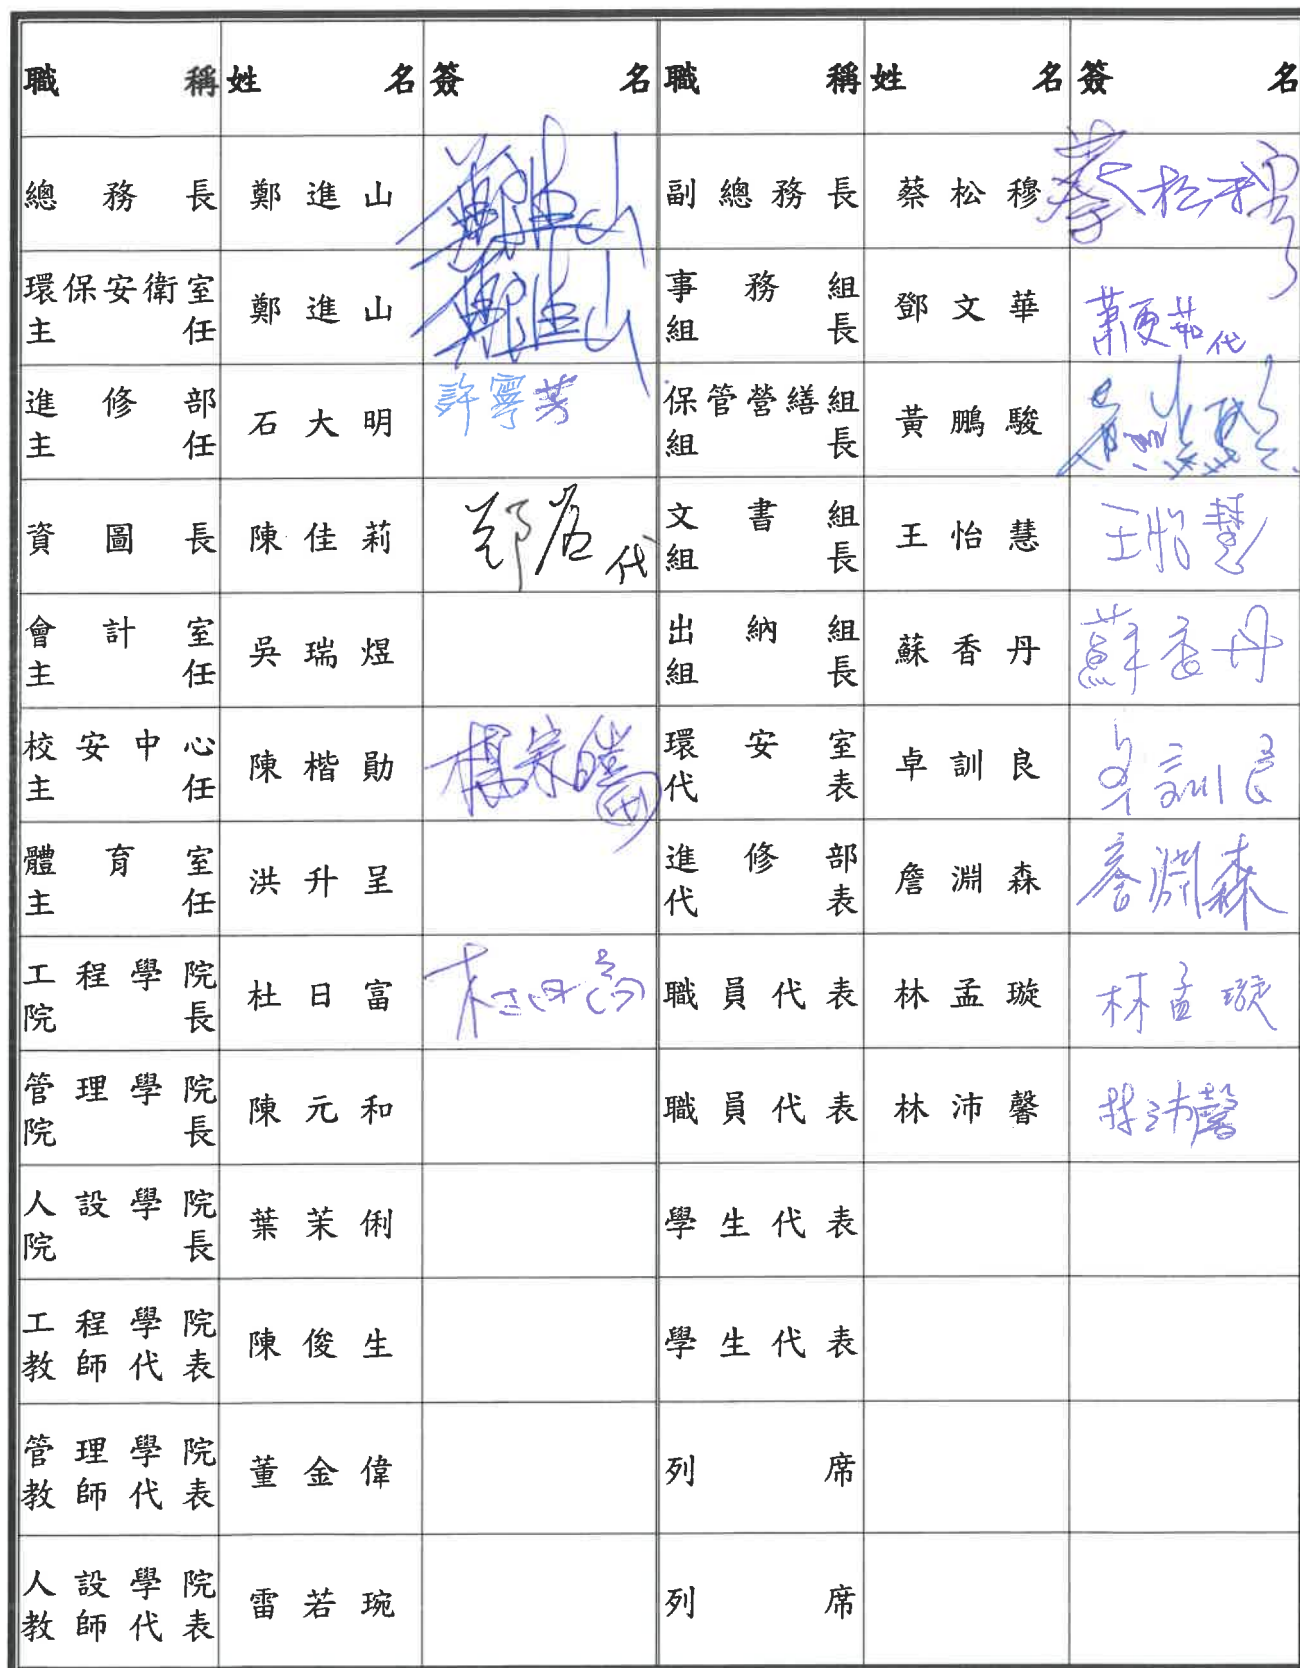 職稱 姓名 簽名 職稱 姓名 簽名
總務長 鄭進山 鄭進山 副總務長 蔡松穆 蔡松穆
環保安衛室主任 鄭進山 鄭進山 事務組組長 鄧文華 代
進修部主任 石大明 許寧芳 保管營繕組組長 黃鵬駿
資圖長 陳佳莉 代 文書組組長 王怡慧 王怡慧
會計室主任 吳瑞煜 出納組組長 蘇香丹 蘇香丹
校安中心主任 陳楷勛 楊宗 環安室代表 卓訓良 卓訓良
體育室主任 洪升呈 進修部代表 詹淵森 詹淵森
工程學院院長 杜日富 杜日富 職員代表 林孟璇 林孟璇
管理學院院長 陳元和 職員代表 林沛馨 林沛馨
人設學院院長 葉茉俐 學生代表
工程學院教師代表 陳俊生 學生代表
管理學院教師代表 董金偉 列席
人設學院教師代表 雷若琬 列席